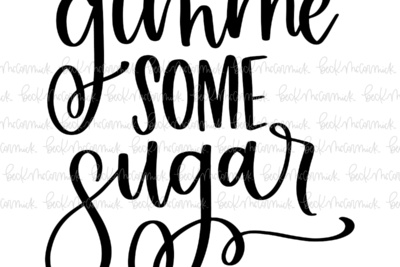 gimme
SOME
sugar